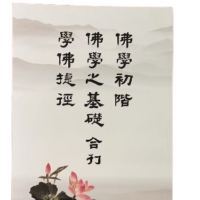 佛學初階
佛學之基礎 合刊
學佛捷徑